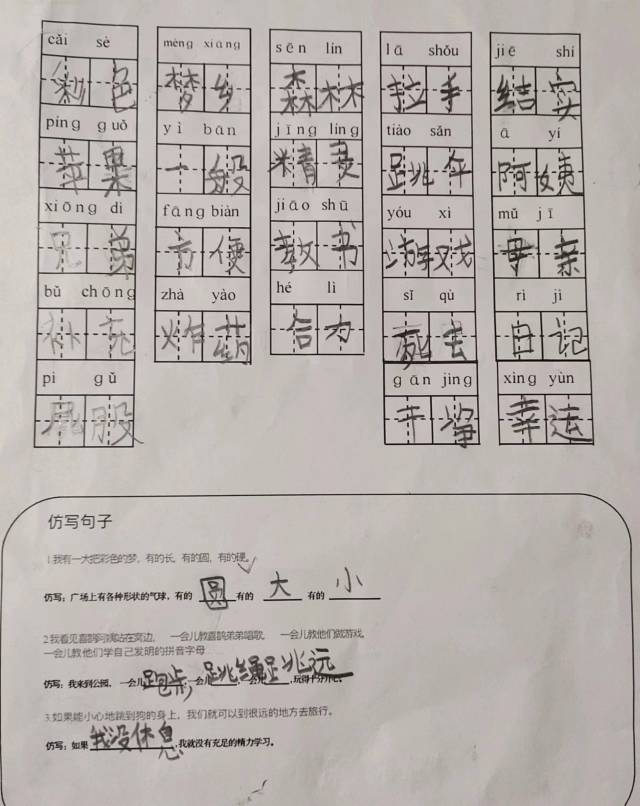 cǎi sè mèng xiāng sēn lín lā shǒu jiē shí
彩 色 梦 乡 森 林 拉 手 结 实
píng guǒ yì bān jīng líng tiào sǎn ā yí
苹 果 一 般 精 灵 跳 伞 阿 姨
xiōng dì fāng biàn jiāo shū yóu xì mǔ jī
兄 弟 方 便 教 书 游 戏 母 亲
bǔ chōng zhà yào hé lì sǐ qù rì jì
补 充 炸 药 合 力 死 去 日 记
pì gǔ gān jìng xìng yùn
屁 股 干 净 幸 运
仿写句子
1.我有一大把彩色的梦，有的长，有的圆，有的硬。
仿写：广场上有各种形状的气球，有的 圆 有的 大 有的 小
2.我看见喜鹊阿姨站在窝边，一会儿教喜鹊弟弟唱歌，一会儿教他们做游戏，
一会儿教他们学自己发明的拼音字母
仿写：我来到公园，一会儿跑步，一会儿跳绳，一会儿跳远，玩得十分开心。
3.如果能小心地跳到狗的身上，我们就可以到很远的地方去旅行。
仿写：如果 我没休息 ，我就没有充足的精力学习。